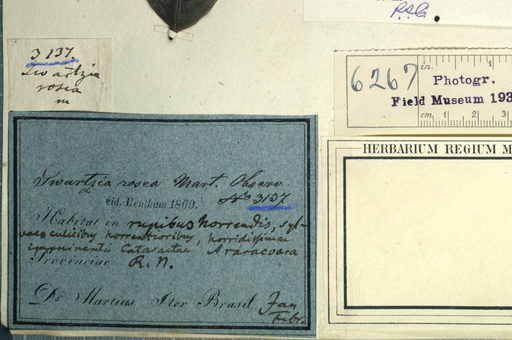 R.S.C
3137.
Swartzia
rosea
m
6267
in. 1
Photogr.
Field Museum 193
cm. 1 2 3
HERBARIUM REGIUM M
Swartzia rosea Mart. Observ.
Vid. Bentham 1869. No 3137
Habitat in rupibus horrendis, syl-
vaeculisbus horrentioribus, horridissimae
imminentis Catasaitae Araracoara
Provinciae R. N.
Dr Martius Iter Brasil Jan
Febr.